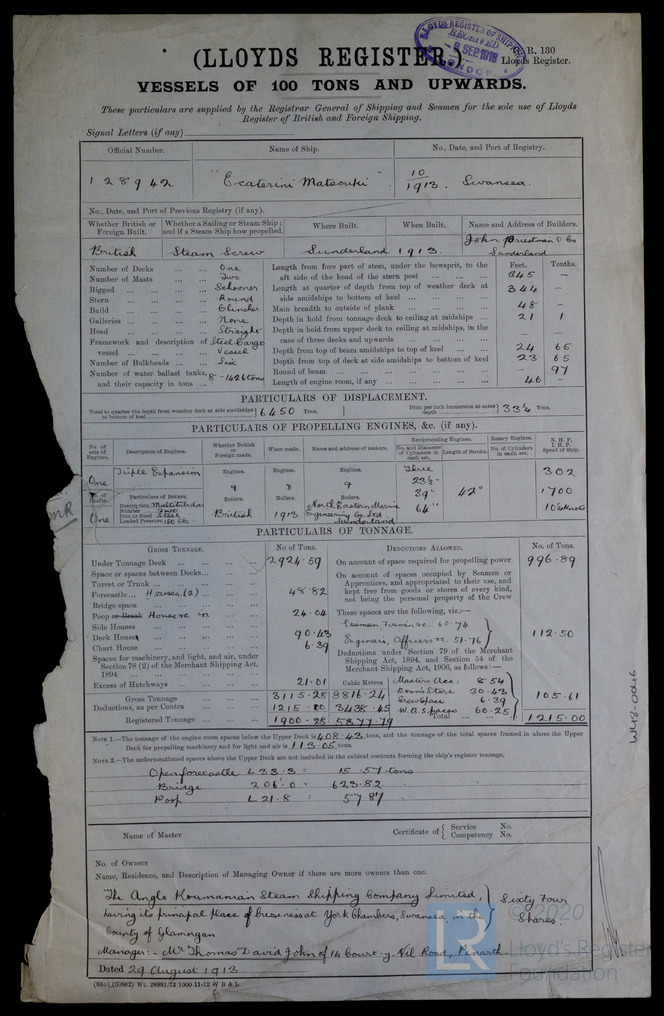 (LLOYDS REGISTER.)
LLOYD'S REGISTER OF SHIPPING
RECEIVED
8 SEP 1913
LONDON
G. R. 130
Lloyds Register.
VESSELS OF 100 TONS AND UPWARDS.
These particulars are supplied by the Registrar General of Shipping and Seamen for the sole use of Lloyds
Register of British and Foreign Shipping.
Signal Letters (if any)
Official Number. Name of Ship. No., Date, and Port of Registry.
128942 "Ecaterini Matsouki" 10/1913. Swansea.
No., Date, and Port of Previous Registry (if any).
Whether British or Foreign Built. Whether a Sailing or Steam Ship; and if a Steam Ship how propelled. Where Built. When Built. Name and Address of Builders.
British Steam Screw Sunderland 1913 John Priestman & Co Sunderland
Feet. Tenths.
Number of Decks ... ... One
Number of Masts ... ... Two
Rigged ... ... Schooner
Stern ... ... Round
Build ... ... Clincher
Galleries ... ... None
Head ... ... Straight
Framework and description of vessel ... ... Steel Cargo Vessel
Number of Bulkheads ... ... Six
Number of water ballast tanks, and their capacity in tons ... 8 - 1426 tons
Length from fore part of stem, under the bowsprit, to the aft side of the head of the stern post ... 345 —
Length at quarter of depth from top of weather deck at side amidships to bottom of keel ... 344 —
Main breadth to outside of plank ... 48 —
Depth in hold from tonnage deck to ceiling at midships ... 21 1
Depth in hold from upper deck to ceiling at midships, in the case of three decks and upwards ... — —
Depth from top of beam amidships to top of keel ... 24 65
Depth from top of deck at side amidships to bottom of keel 23 65
Round of beam ... — 97
Length of engine room, if any ... 46 —
PARTICULARS OF DISPLACEMENT.
Total to quarter the depth from weather deck at side amidships to bottom of keel 6450 Tons. Ditto per inch immersion at same depth 33¼ Tons.
PARTICULARS OF PROPELLING ENGINES, &c. (if any).
No. of sets of Engines. Description of Engines. Whether British or Foreign made. When made. Name and address of makers. Reciprocating Engines. Rotary Engines. N. H. P. I. H. P. Speed of Ship.
No. and Diameter of Cylinders in each set. Length of Stroke. No. of Cylinders in each set.
One Triple Expansion Engines. Engines. Engines. Three 23½" 39" 64" 42" 302
1700
10½ knots
No. of Shafts. One
Particulars of Boilers. Boilers. Boilers. Boilers.
Description Multitubular
Number Two
Iron or Steel Steel
Loaded Pressure 180 lbs
British 1913 North Eastern Marine Engineering Co. Ltd Sunderland
PARTICULARS OF TONNAGE.
GROSS TONNAGE. No. of Tons. DEDUCTIONS ALLOWED. No. of Tons.
Under Tonnage Deck ... 2924.59
Space or spaces between Decks ...
Turret or Trunk ...
Forecastle ... Houses (2) 48.82
Bridge space
Poop or Break House 24.04
Side Houses
Deck Houses 90.43
Chart House 6.39
Spaces for machinery, and light, and air, under Section 78 (2) of the Merchant Shipping Act, 1894 ...
Excess of Hatchways ... 21.01
Cubic Metres
Gross Tonnage 3115.28 8816.24
Deductions, as per Contra ... 1215.00 3438.45
Registered Tonnage ... 1900.28 5377.79
On account of space required for propelling power 996.89
On account of spaces occupied by Seamen or Apprentices, and appropriated to their use, and kept free from goods or stores of every kind, not being the personal property of the Crew
These spaces are the following, viz.:—
Seamen, Firemen &c. 60.74
Engineers, Officers &c. 51.76 } 112.50
Deductions under Section 79 of the Merchant Shipping Act, 1894, and Section 54 of the Merchant Shipping Act, 1906, as follows:—
Masters Acc: 8.54
Bons'n Store 30.43
6.39
W.B. Spaces 60.25 } 105.61
Total ... 1215.00
NOTE 1.—The tonnage of the engine room spaces below the Upper Deck is 408.43 tons, and the tonnage of the total spaces framed in above the Upper
Deck for propelling machinery and for light and air is 113.05 tons.
NOTE 2.—The undermentioned spaces above the Upper Deck are not included in the cubical contents forming the ship's register tonnage.
Open forecastle L 33.3 = 15.57 tons
Bridge 206.0 = 623.82 "
Poop L. 21.8 = 57.87 "
Name of Master Certificate of { Service No. Competency No.
No. of Owners
Name, Residence, and Description of Managing Owner if there are more owners than one.
The Anglo Roumanian Steam Shipping Company Limited, } Sixty Four
having its principal place of business at York Chambers, Swansea, in the } Shares.
County of Glamorgan
Manager:- Mr Thomas David John of 14 Court-y-Vil Road, Penarth.
Dated 29 August 1913
(85o) (69862) Wt. 28981/72 1000 11-12 W B & L
W418-0046
LR
© 2020
Lloyd's Register
Foundation